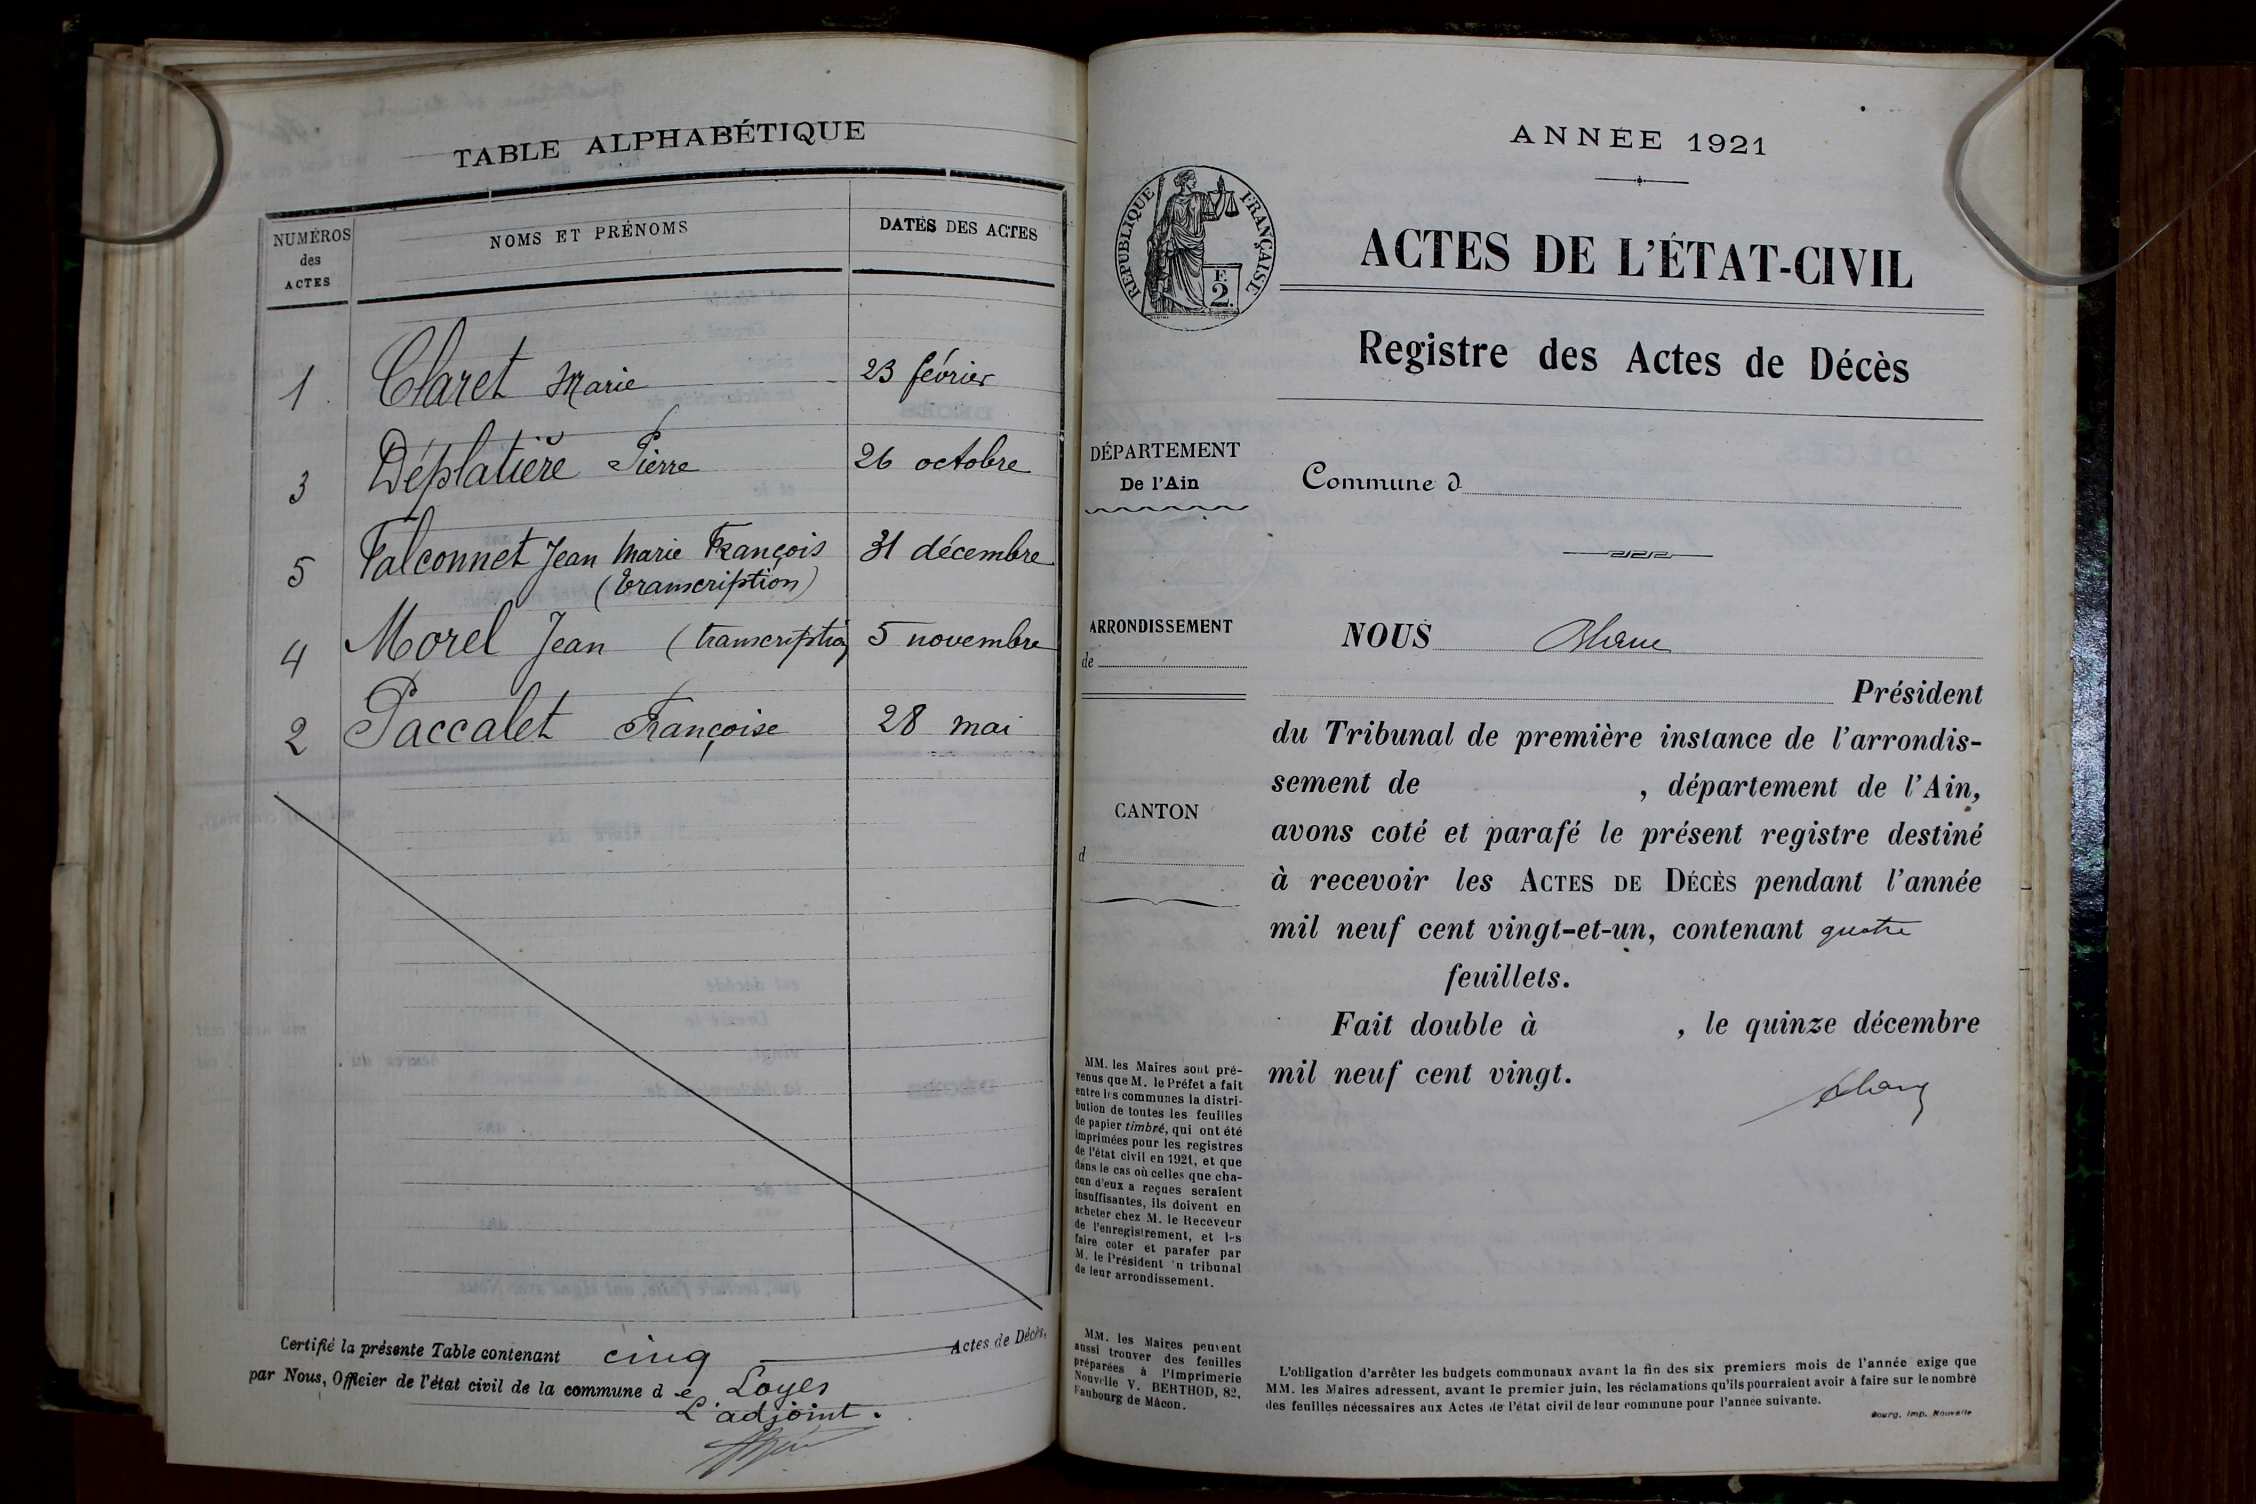 TABLE ALPHABÉTIQUE
NUMÉROS
des
ACTES
NOMS ET PRÉNOMS
DATES DES ACTES
1 Claret Marie 23 février
3 Déplatière Pierre 26 octobre
5 Falconnet Jean Marie François 31 décembre
(transcription)
4 Morel Jean (transcription) 5 novembre
2 Paccalet Françoise 28 mai
Certifié la présente Table contenant cinq Actes de Décès,
par Nous, Officier de l'état civil de la commune de Loyes
L'adjoint.
ANNÉE 1921
RÉPUBLIQUE FRANÇAISE
F.
2.
ACTES DE L'ÉTAT-CIVIL
Registre des Actes de Décès
DÉPARTEMENT
De l'Ain
Commune d
ARRONDISSEMENT
de
NOUS
Président
du Tribunal de première instance de l'arrondis-
sement de , département de l'Ain,
avons coté et parafé le présent registre destiné
à recevoir les ACTES DE DÉCÈS pendant l'année
mil neuf cent vingt-et-un, contenant quatre
feuillets.
Fait double à , le quinze décembre
mil neuf cent vingt.
CANTON
d
MM. les Maires sont pré-
venus que M. le Préfet a fait
entre les communes la distri-
bution de toutes les feuilles
de papier timbré, qui ont été
imprimées pour les registres
de l'état civil en 1921, et que
dans le cas où celles que cha-
cun d'eux a reçues seraient
insuffisantes, ils doivent en
acheter chez M. le Receveur
de l'enregistrement, et les
faire coter et parafer par
M. le Président du tribunal
de leur arrondissement.
MM. les Maires peuvent
aussi trouver des feuilles
préparées à l'Imprimerie
Nouvelle V. BERTHOD, 82,
Faubourg de Mâcon.
L'obligation d'arrêter les budgets communaux avant la fin des six premiers mois de l'année exige que
MM. les Maires adressent, avant le premier juin, les réclamations qu'ils pourraient avoir à faire sur le nombre
des feuilles nécessaires aux Actes de l'état civil de leur commune pour l'année suivante.
Bourg, Imp. Nouvelle